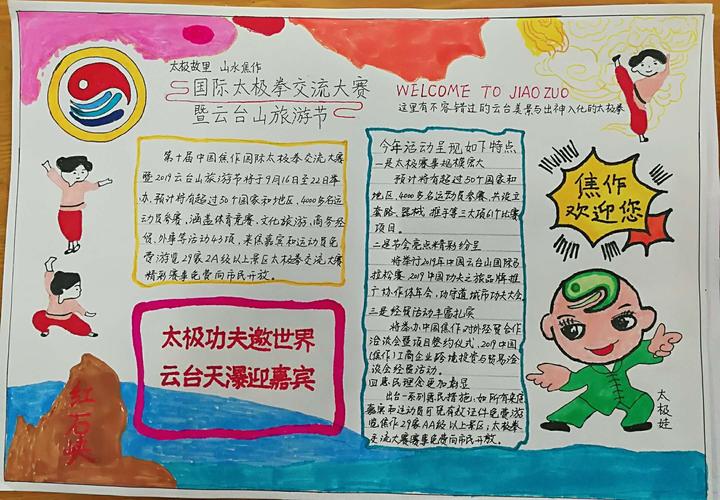 太极故里 山水焦作
国际太极拳交流大赛
暨云台山旅游节
WELCOME TO JIAOZUO
这里有不容错过的云台美景与出神入化的太极拳
第十届中国焦作国际太极拳交流大赛
暨2019云台山旅游节将于9月16日至22日举
办，预计将有超过50个国家和地区，4000多名运
动员参赛，涵盖体育竞赛、文化旅游、商务经
贸、外事等活动43项，来焦嘉宾和运动员免
费游览29家2A级以上景区太极拳交流大赛
精彩赛事免费向市民开放。
太极功夫邀世界
云台天瀑迎嘉宾
红石峡
今年运动呈现如下特点
一是太极赛事规模宏大
预计将有超过50个国家和
地区，4000多名运动员参赛，共设立
套路、器械、推手等三大项61个比赛
项目。
二是节会亮点精彩纷呈
将举行2019年中国云台山国际马
拉松赛，2019中国功夫之旅品牌推
广协作体年会，功守道城市功夫大会
三是经贸活动丰富扎实
将举办中国焦作对外经贸合作
洽谈会暨项目签约仪式，2019中国
(焦作)工商企业跨境投资与贸易洽
谈会经贸活动。
四惠民理念更加彰显
出台一系列惠民措施：如所有来焦
嘉宾和运动员可凭有效证件免费游
览焦作29家AA级以上景区；太极拳
交流大赛赛事免费向市民开放。
焦作
欢迎您
太极娃